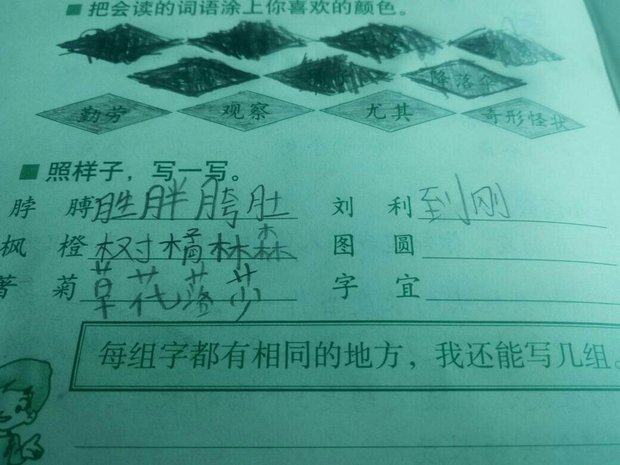 ■ 把会读的词语涂上你喜欢的颜色。
降落伞
勤劳 观察 尤其 奇形怪状
■ 照样子，写一写。
脖 膊 胜胖胯肚 刘 利 到刚
枫 橙 权对橘林森 图 圆
著 菊 草花落莎 字 宜
每组字都有相同的地方，我还能写几组。